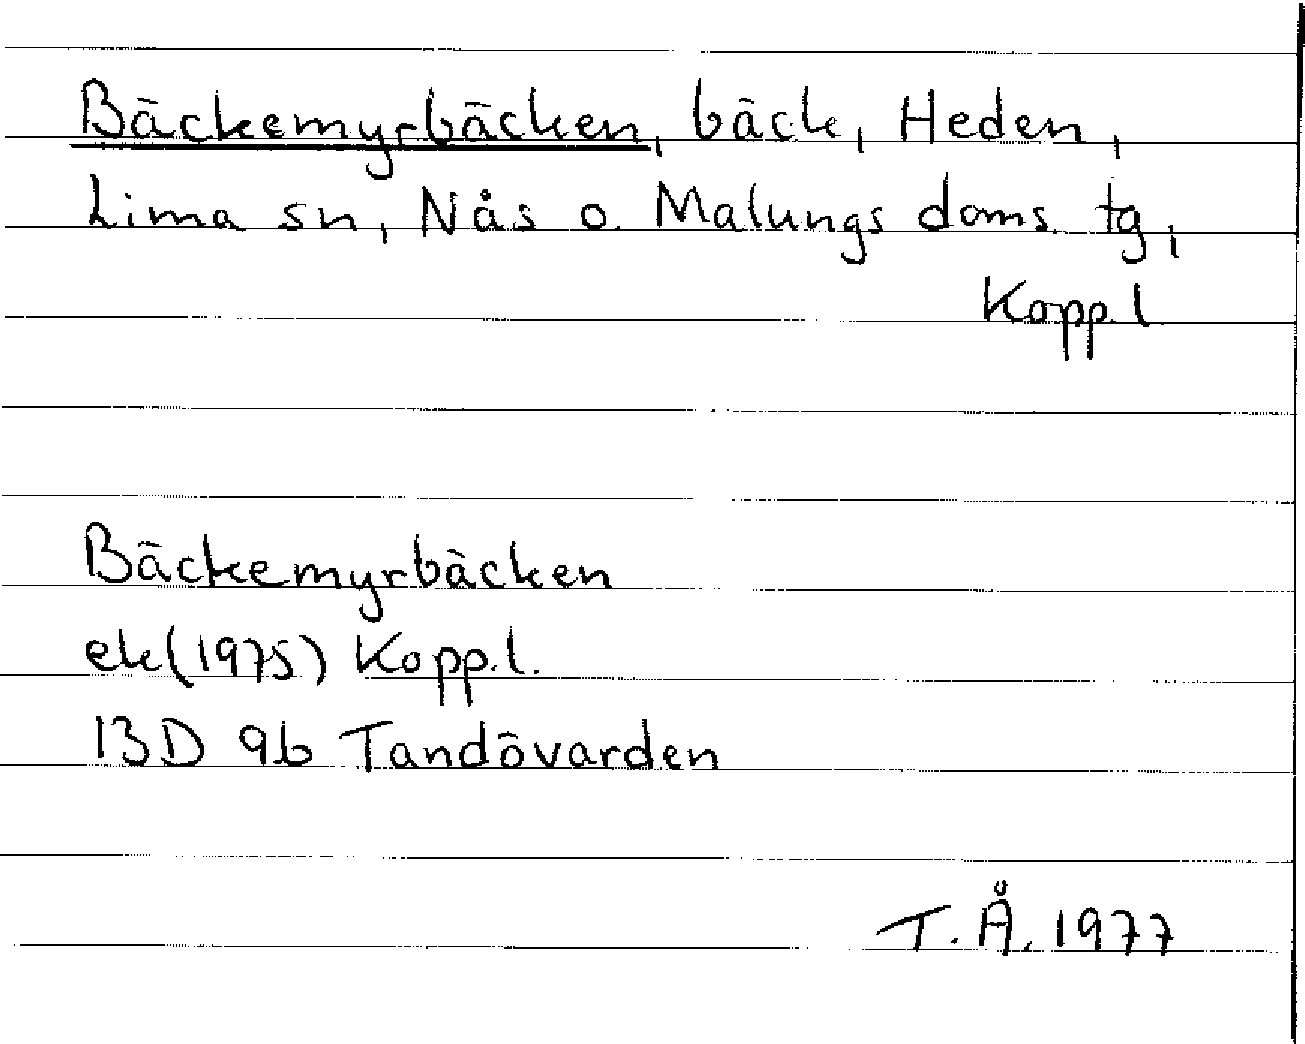 Bäckemyrbäcken, bäck, Heden,
Lima sn, Nås o. Malungs doms. tg,
Kopp.l
Bäckemyrbäcken
ek(1975) Kopp.l.
13D 9b Tandövarden
T.Å. 1977